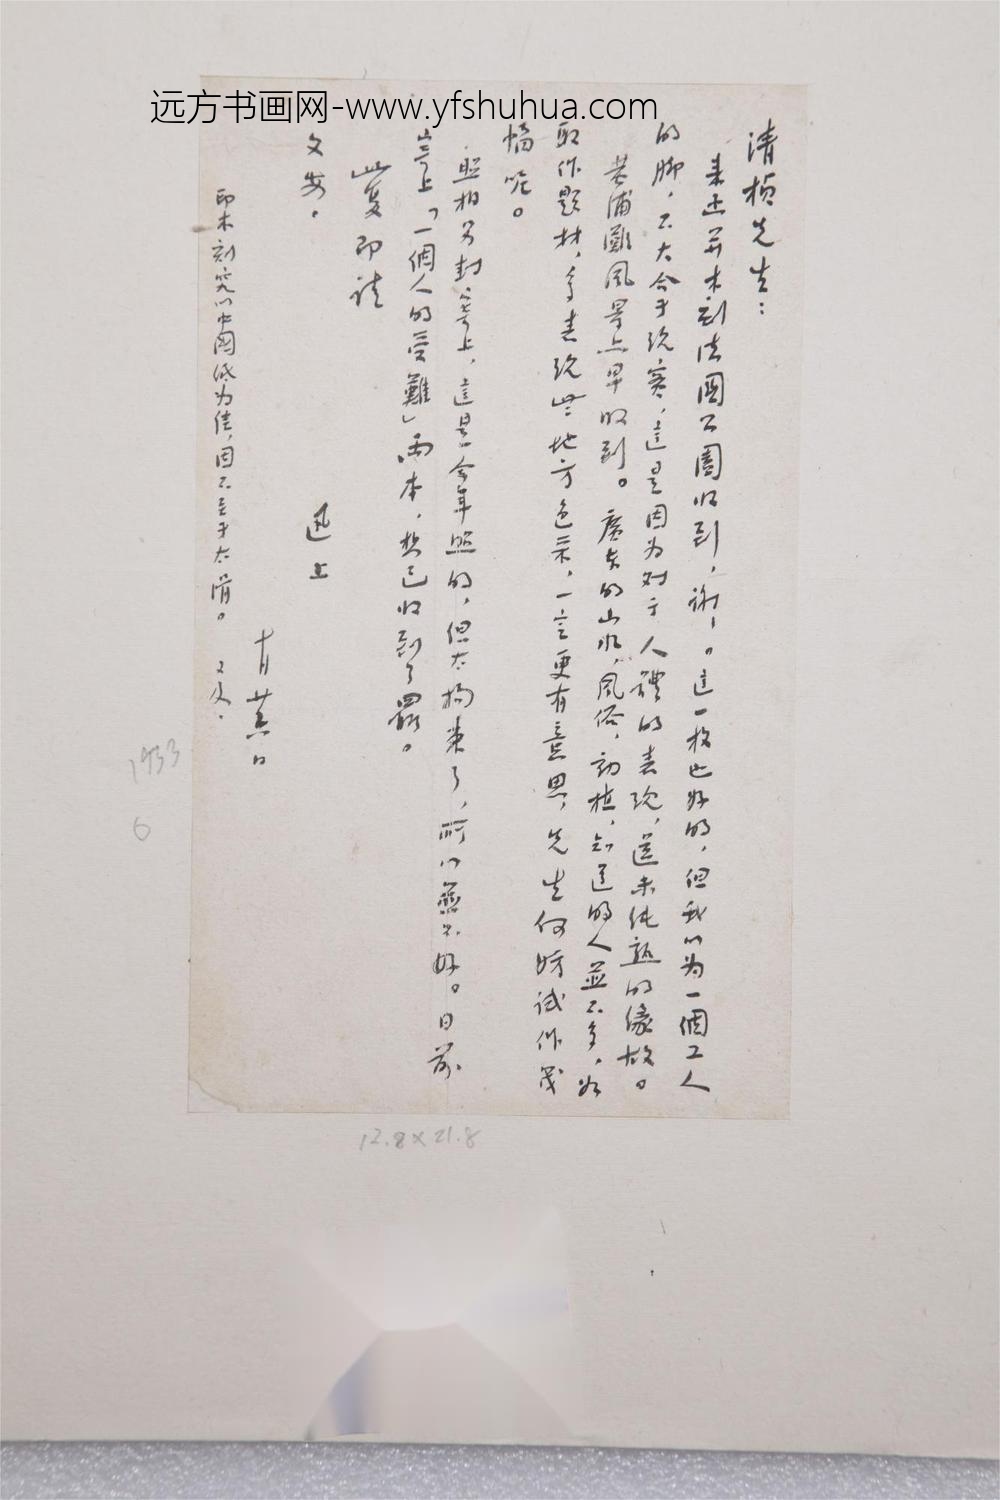 远方书画网-www.yfshuhua.com
清楨先生：
來函并木刻法國公園收到，謝〻。這一枚也好的，但我以为一個工人
的脚，不大合于現實，這是因为对于人體的表現，還未純熟的緣故。
黄浦灘風景亦早收到。廣東的山水，風俗，動植，知道的人並不多，如
取作題材，多表現些地方色采，一定更有意思，先生何妨試作幾
幅呢。
照相另封寄上，這是今年照的，但太拘束了，所以並不好。日前
寄上「一個人的受難」兩本，想已收到了罷。
此复即請
文安。
迅上
十二月廿六日
印木刻究以中國纸为佳，因不至于太滑。又及。
1933
6
12.8×21.8